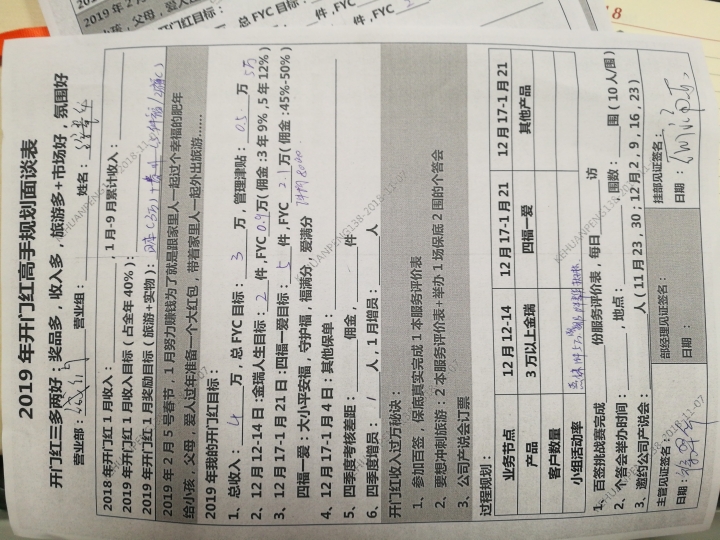 2019年开门红高手规划面谈表
开门红三多两好：奖品多，收入多，旅游多+市场好，氛围好
营业部： 营业组： 姓名：
2018年开门红1月收入： ，1月-9月累计收入：
2019年开门红1月收入目标（占全年40%）：
2019年开门红1月奖励目标（旅游+实物）：
2019年2月5号春节，1月努力赚钱为了就是跟家里人一起过个幸福的肥年
给小孩，父母，爱人过年准备一个大红包，带着家里人一起外出旅游……
2019年我的开门红目标：
1、总收入： 4 万，总FYC目标： 3 万，管理津贴： 0.5 万 5万
2、12月12-14日：金瑞人生目标： 2 件，FYC 0.9 万（佣金：3年9%，5年12%）
3、12月17-1月21日：四福一爱目标： 5 件，FYC 2.1 万（佣金：45%-50%）
四福一爱：大小平安福，守护福，福满分，爱满分 件均8000
4、12月17-1月4日：其他保单：
5、四季度考核差距： 佣金， 件
6、四季度增员： / 人，1月增员： 人
开门红收入过万秘诀：
1、参加百签，保底真实完成1本服务评价表
2、要想冲刺旅游：2本服务评价表+举办1场保底2围的个答会
3、公司产说会订票
过程规划：
业务节点 12月12-14 12月17-1月21 12月17-1月21
产品 3万以上金瑞 四福一爱 其他产品
客户数量
小组活动率
1、百签挑战赛完成 份服务评价表，每日 访
2、个答会举办时间： ，地点： ，围数： 围（10人/围）
3、邀约公司产说会： 人（11月23，30；12月2，9，16，23）
主管见证签名： 部经理见证签名： 挂部见证签名：
日期： 日期： 日期：
KEHUANPENG138-2018-11-07